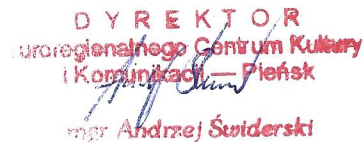 DYREKTOR
uroregionalnego Centrum Kultury
i Komunikacji — Pieńsk
mgr Andrzej Świderski